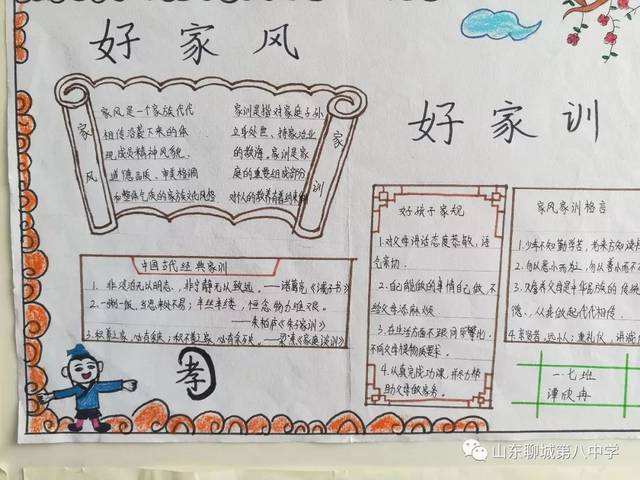 好家风
好家训
家风
家风是一个家族代代
相传沿袭下来的体
现成员精神风貌、
道德品质、审美格调
和整体气质的家族文化风格
家训是指对家庭子孙
立身处世、持家治业
的教诲。家训是家
庭的重要组成部分
对个人的教养有着约束
家训
中国古代经典家训
1. 非淡泊无以明志,非宁静无以致远。——诸葛亮《诫子书》
2.一粥一饭,当思来处不易;半丝半缕,恒念物力维艰。
——朱柏庐《朱子家训》
3.积善之家,必有余庆;积不善之家,必有余殃。——
孝
好孩子家规
1.对父母讲话态度恭敬,语
气亲切.
2.自己能做的事情自己做,不
给父母添麻烦
3.在生活方面不跟同学攀比,
不向父母提物质要求。
4.认真完成功课,并尽力帮
助父母做家务。
家风家训格言
1.少年不知勤学苦,老来方知读书
2.勿以恶小而为之,勿以善小而不
3.孝敬父母是中华民族的传统
德,从来做起代代相传.
一.七班
谭欣冉
山东聊城第八中学